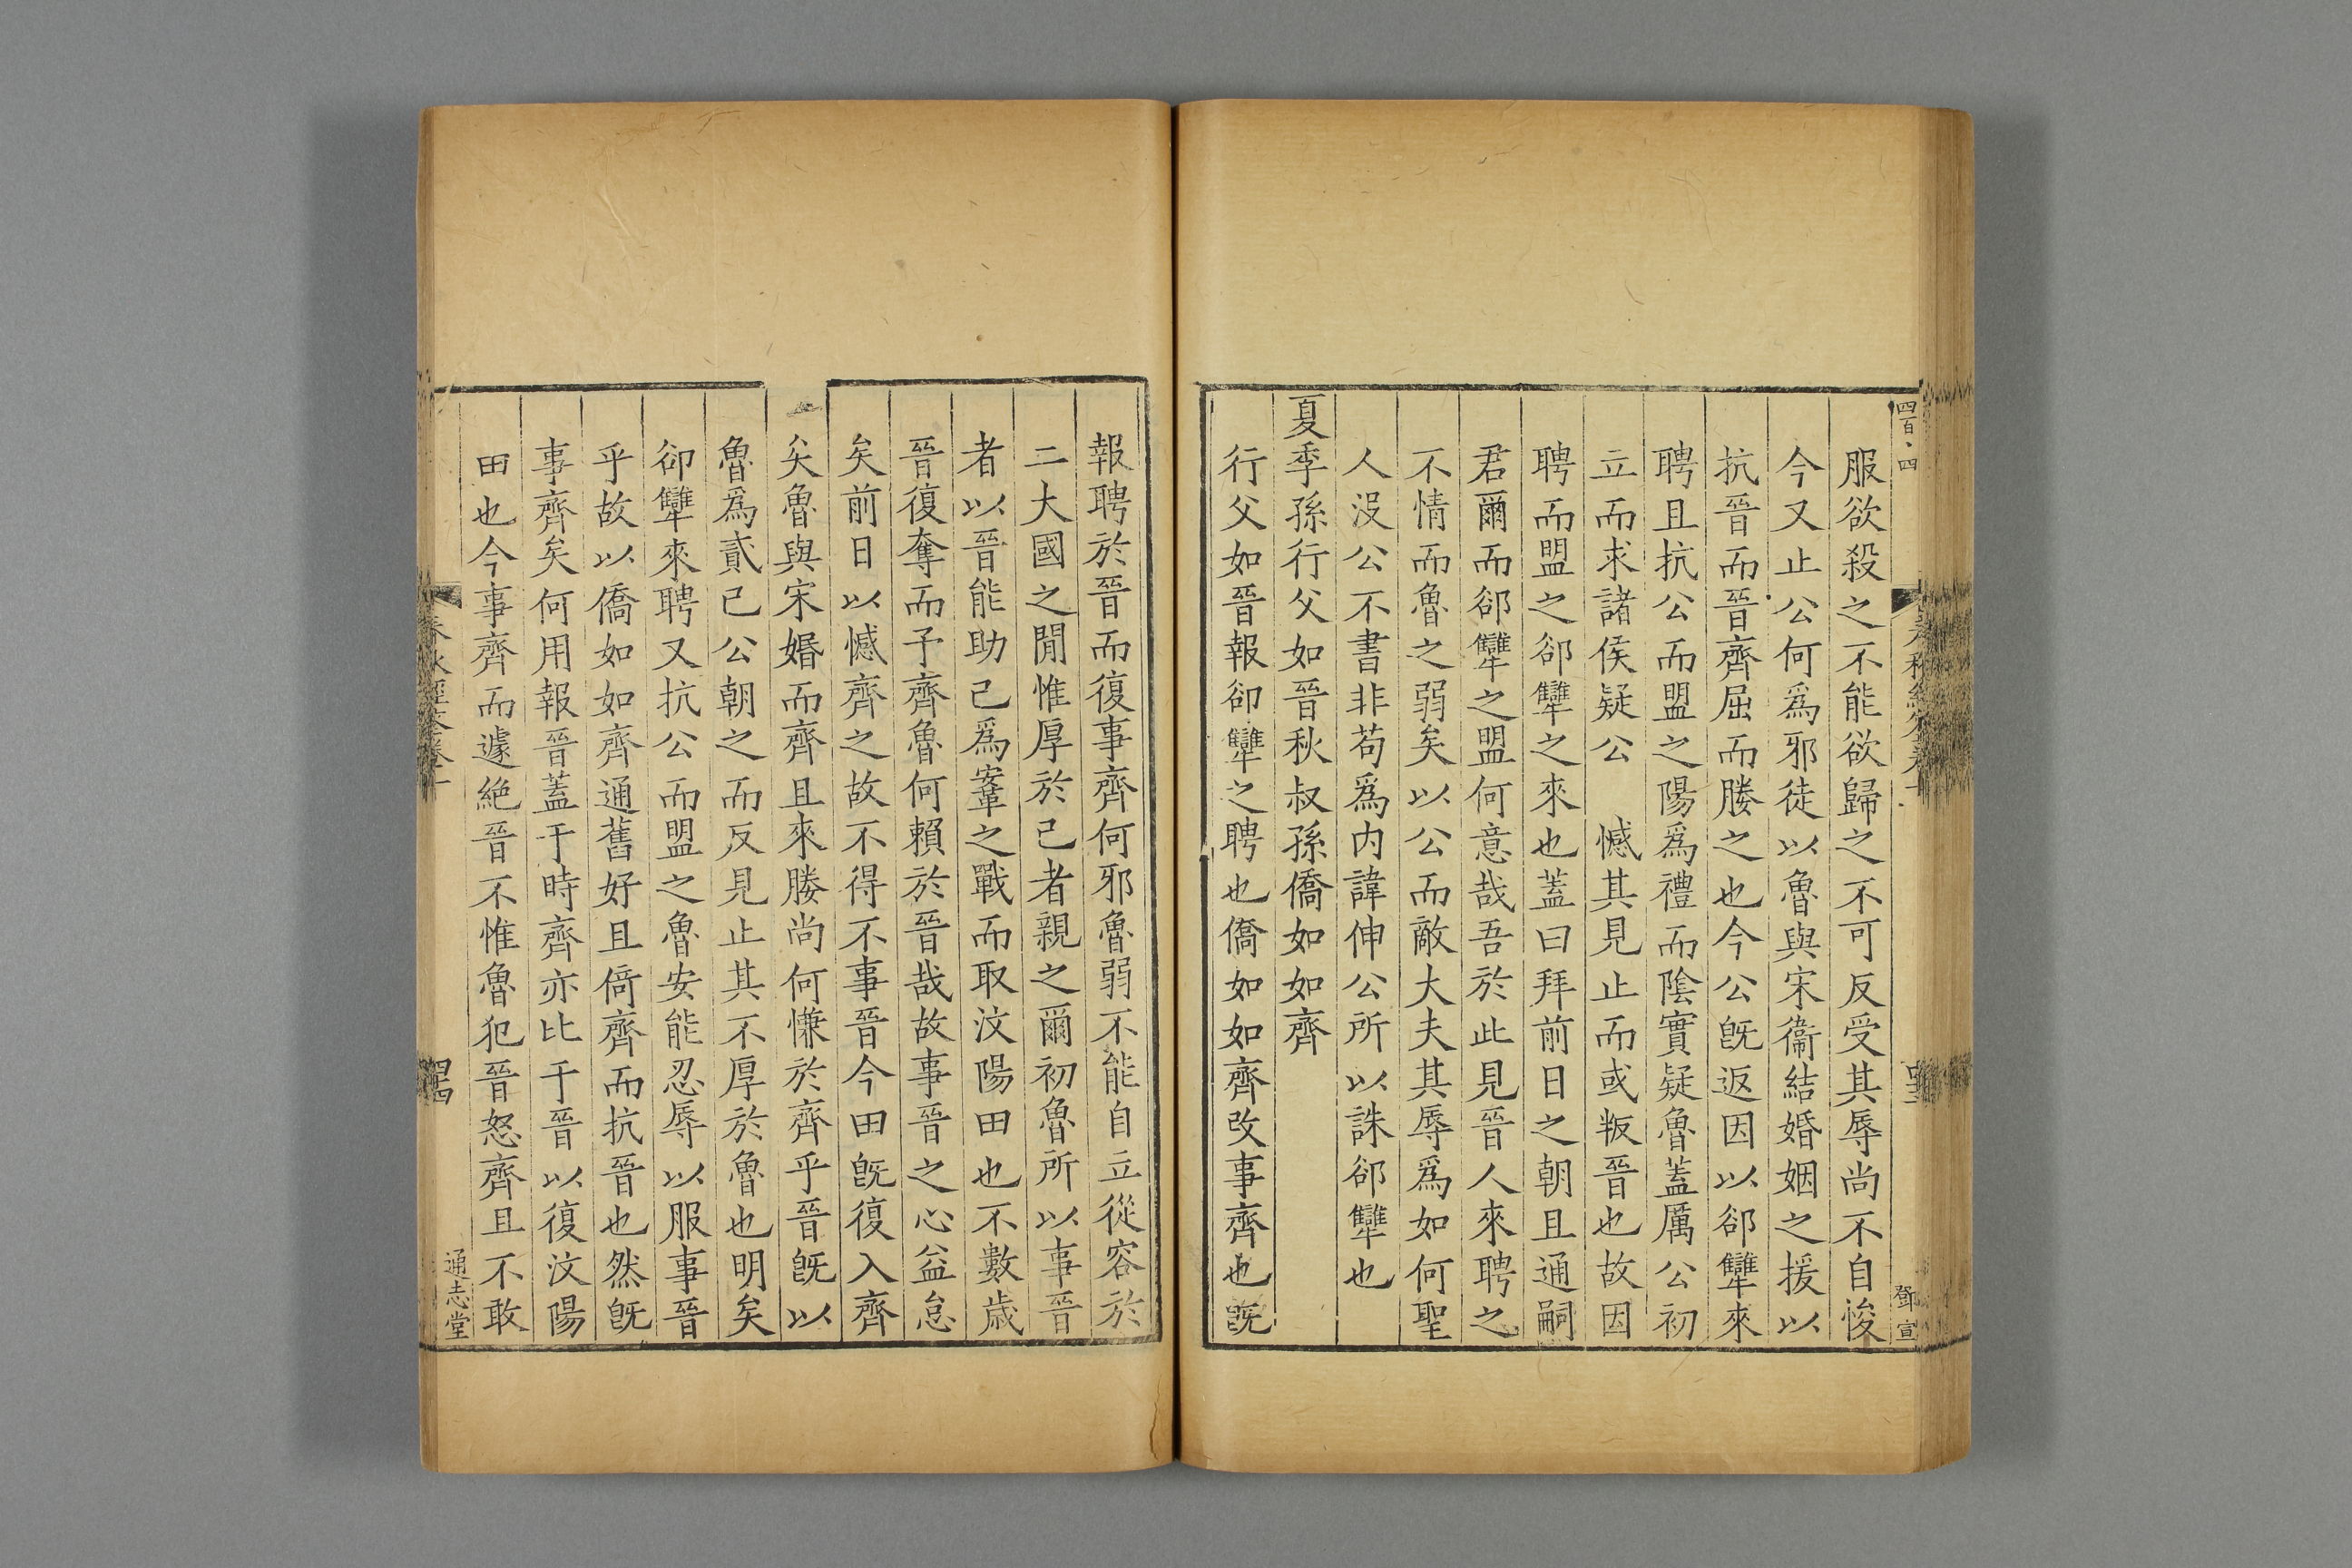 四百四
鄧宣
服欲殺之不能欲歸之不可反受其辱尚不自悛
今又止公何爲邪徒以魯與宋衞結婚姻之援以
抗晉而晉齊屈而媵之也今公旣返因以郤犨來
聘且抗公而盟之陽爲禮而陰實疑魯蓋厲公初
立而求諸侯疑公 憾其見止而或叛晉也故因
聘而盟之郤犨之來也蓋曰拜前日之朝且通嗣
君爾而郤犨之盟何意哉吾於此見晉人來聘之
不情而魯之弱矣以公而敵大夫其辱爲如何聖
人沒公不書非苟爲内諱伸公所以誅郤犨也
夏季孫行父如晉秋叔孫僑如如齊
行父如晉報郤犨之聘也僑如如齊改事齊也旣
報聘於晉而復事齊何邪魯弱不能自立從容於
二大國之閒惟厚於己者親之爾初魯所以事晉
者以晉能助己爲鞌之戰而取汶陽田也不數歲
晉復奪而予齊魯何賴於晉哉故事晉之心益怠
矣前日以憾齊之故不得不事晉今田旣復入齊
矣魯與宋婚而齊且來媵尚何慊於齊乎晉旣以
魯爲貳己公朝之而反見止其不厚於魯也明矣
郤犨來聘又抗公而盟之魯安能忍辱以服事晉
乎故以僑如如齊通舊好且倚齊而抗晉也然旣
事齊矣何用報晉蓋于時齊亦比于晉以復汶陽
田也今事齊而遽絕晉不惟魯犯晉怒齊且不敢
通志堂